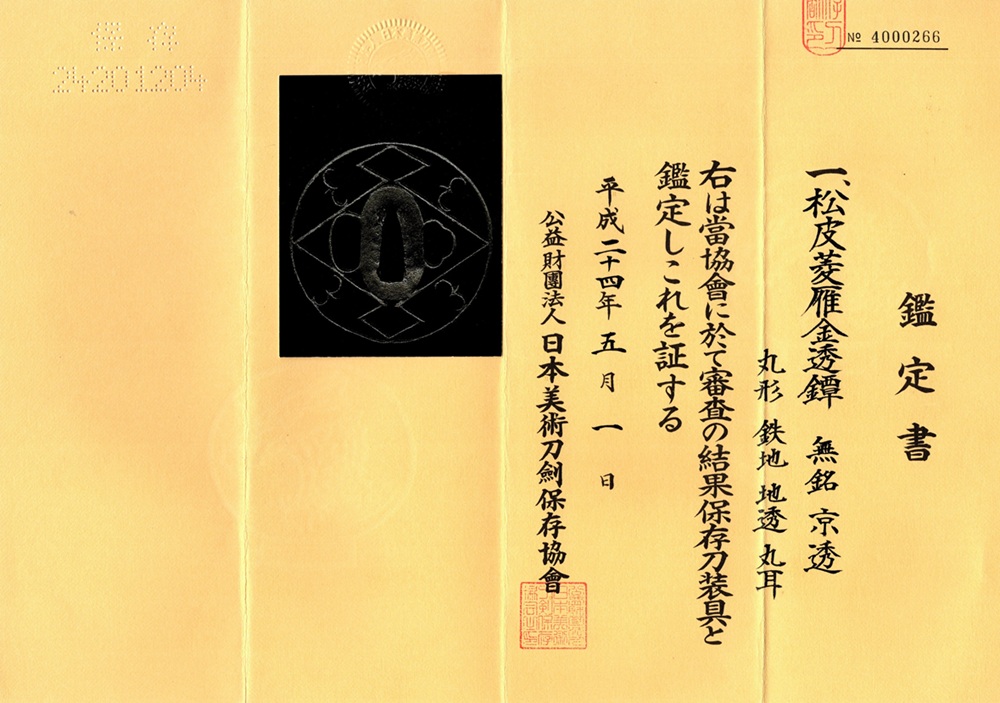 № 4000266
鑑定書
一、松皮菱雁金透鐔 無銘 京透
丸形 鉄地 地透 丸耳
右は當協會に於て審査の結果保存刀装具と
鑑定しこれを証する
平成二十四年五月一日
公益財團法人 日本美術刀劍保存協會
保存
24201204